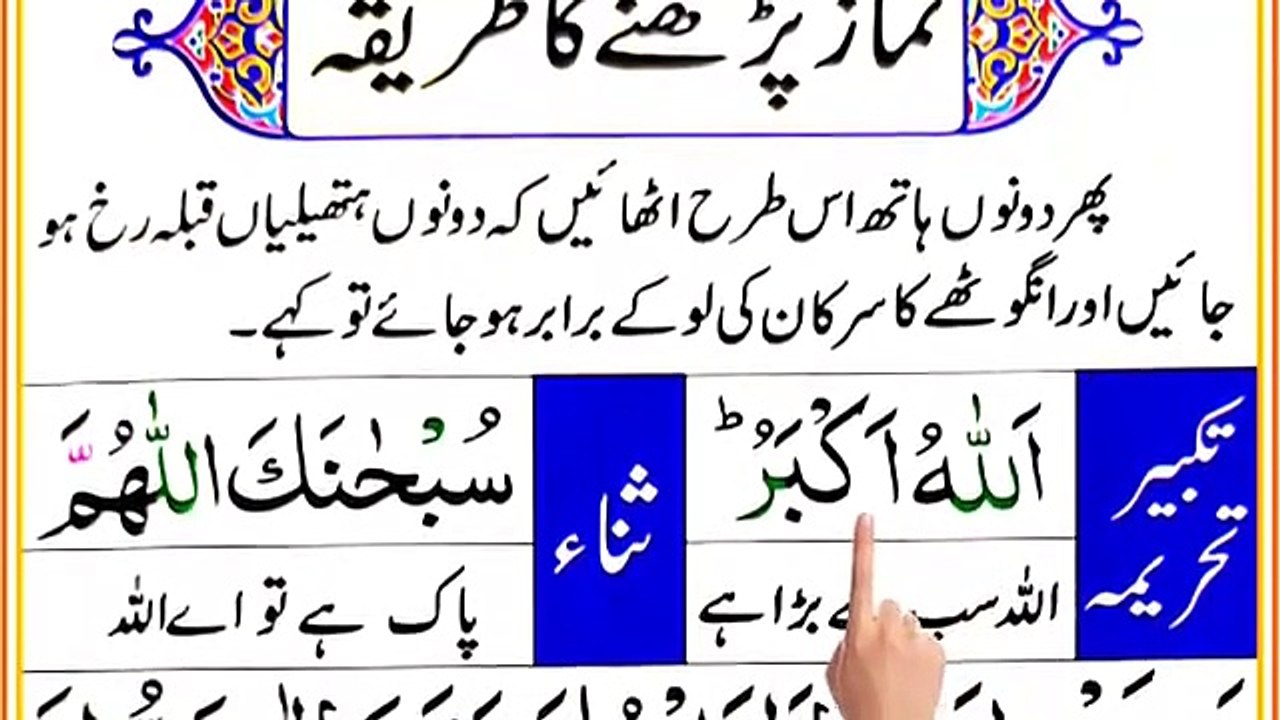 نماز پڑھنے کا طریقہ
پھر دونوں ہاتھ اس طرح اٹھائیں کہ دونوں ہتھیلیاں قبلہ رخ ہو
جائیں اور انگوٹھے کا سر کان کی لو کے برابر ہو جائے تو کہے۔
تکبیر
تحریمہ
اَللّٰهُ اَكْبَرُؕ
اللہ سب بڑا ہے
ثناء
سُبْحٰنَكَ اللّٰهُمَّ
پاک ہے تو اے اللہ